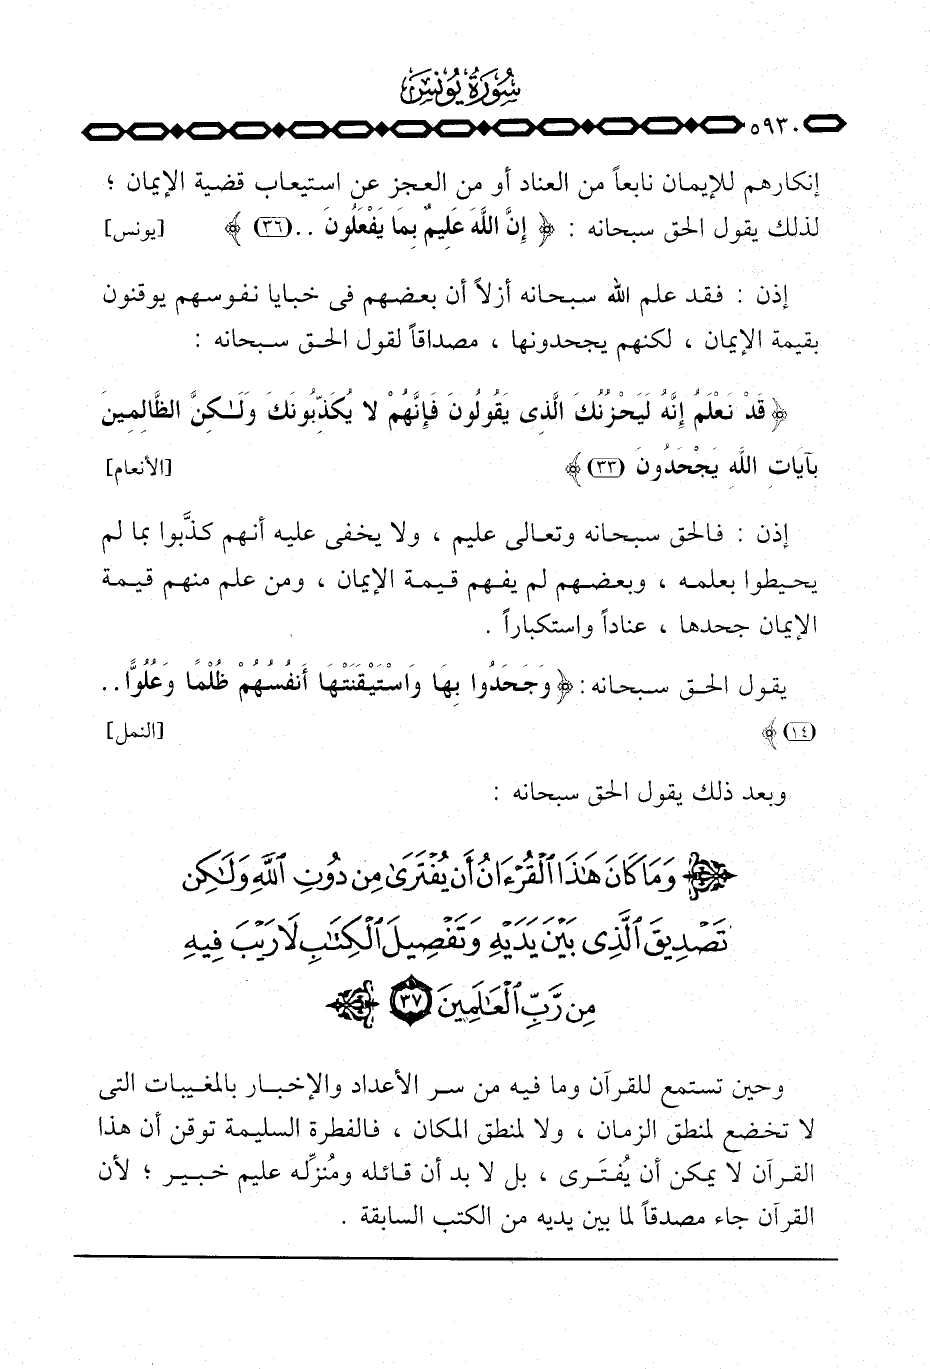 سُورَةُ يُونُسَ
٥٩٣٠
إنكارهم للإيمان نابعاً من العناد أو من العجز عن استيعاب قضية الإيمان ؛
لذلك يقول الحق سبحانه : ﴿ إِنَّ اللَّهَ عَلِيمٌ بِمَا يَفْعَلُونَ ..(٣٦) ﴾ [يونس]
إذن : فقد علم الله سبحانه أزلاً أن بعضهم فى خبايا نفوسهم يوقنون
بقيمة الإيمان ، لكنهم يجحدونها ، مصداقاً لقول الحق سبحانه :
﴿ قَدْ نَعْلَمُ إِنَّهُ لَيَحْزُنُكَ الَّذِى يَقُولُونَ فَإِنَّهُمْ لا يُكَذِّبُونَكَ وَلَـٰكِنَّ الظَّالِمِينَ
بِآيَاتِ اللَّهِ يَجْحَدُونَ (٣٣) ﴾ [الأنعام]
إذن : فالحق سبحانه وتعالى عليم ، ولا يخفى عليه أنهم كذَّبوا بما لم
يحيطوا بعلمه ، وبعضهم لم يفهم قيمة الإيمان ، ومن علم منهم قيمة
الإيمان جحدها ، عناداً واستكباراً .
يقول الحق سبحانه: ﴿ وَجَحَدُوا بِهَا وَاسْتَيْقَنَتْهَا أَنفُسُهُمْ ظُلْمًا وَعُلُوًّا ..
(١٤) ﴾ [النمل]
وبعد ذلك يقول الحق سبحانه :
وَمَا كَانَ هَٰذَا ٱلْقُرْءَانُ أَن يُفْتَرَىٰ مِن دُونِ ٱللَّهِ وَلَٰكِن
تَصْدِيقَ ٱلَّذِى بَيْنَ يَدَيْهِ وَتَفْصِيلَ ٱلْكِتَٰبِ لَا رَيْبَ فِيهِ
مِن رَّبِّ ٱلْعَٰلَمِينَ ٣٧
وحين تستمع للقرآن وما فيه من سر الأعداد والإخبار بالمغيبات التى
لا تخضع لمنطق الزمان ، ولا لمنطق المكان ، فالفطرة السليمة توقن أن هذا
القرآن لا يمكن أن يُفتَرى ، بل لا بد أن قائله ومُنزِّله عليم خبير ؛ لأن
القرآن جاء مصدقاً لما بين يديه من الكتب السابقة .